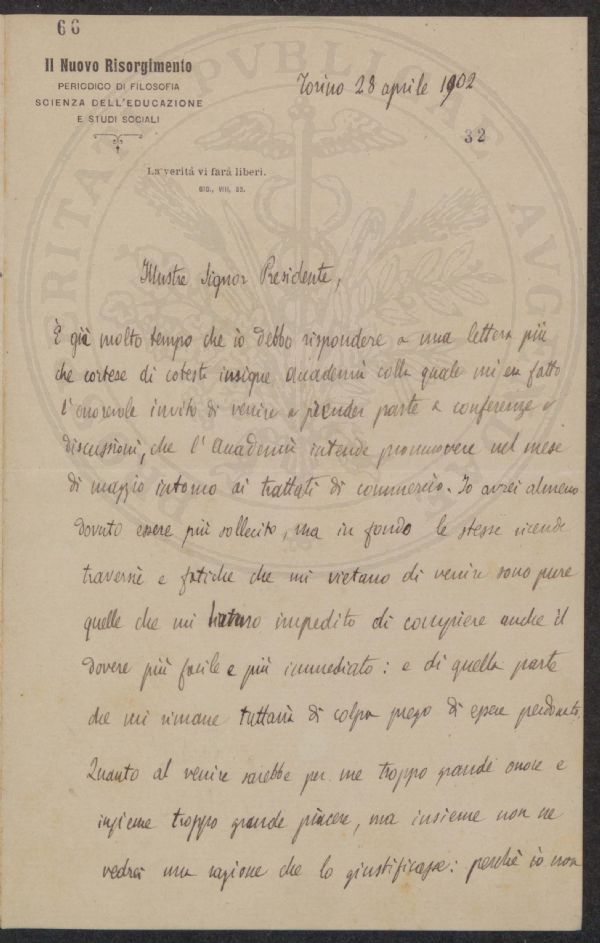 66
Il Nuovo Risorgimento
PERIODICO DI FILOSOFIA
SCIENZA DELL'EDUCAZIONE
E STUDI SOCIALI
Torino 28 aprile 1902
32
La verità vi farà liberi.
GIO., VIII, 32.
Illustre Signor Presidente,
È già molto tempo che io debbo rispondere a una lettera più
che cortese di codesta insigne Accademia colla quale mi era fatto
l'onorevole invito di venire a prender parte a conferenze e
discussioni, che l'Accademia intende promuovere nel mese
di maggio intorno ai trattati di commercio. Io avrei almeno
dovuto essere più sollecito, ma in fondo le stesse vicende
traversie e fatiche che mi vietano di venire sono pure
quelle che mi hanno impedito di compiere anche il
dovere più facile e più immediato: e di quella parte
che mi rimane tuttavia di colpa prego di essere perdonato.
Quanto al venire sarebbe per me troppo grande onore e
insieme troppo grande piacere, ma insieme non ne
vedrei una ragione che lo giustificasse: perchè io non